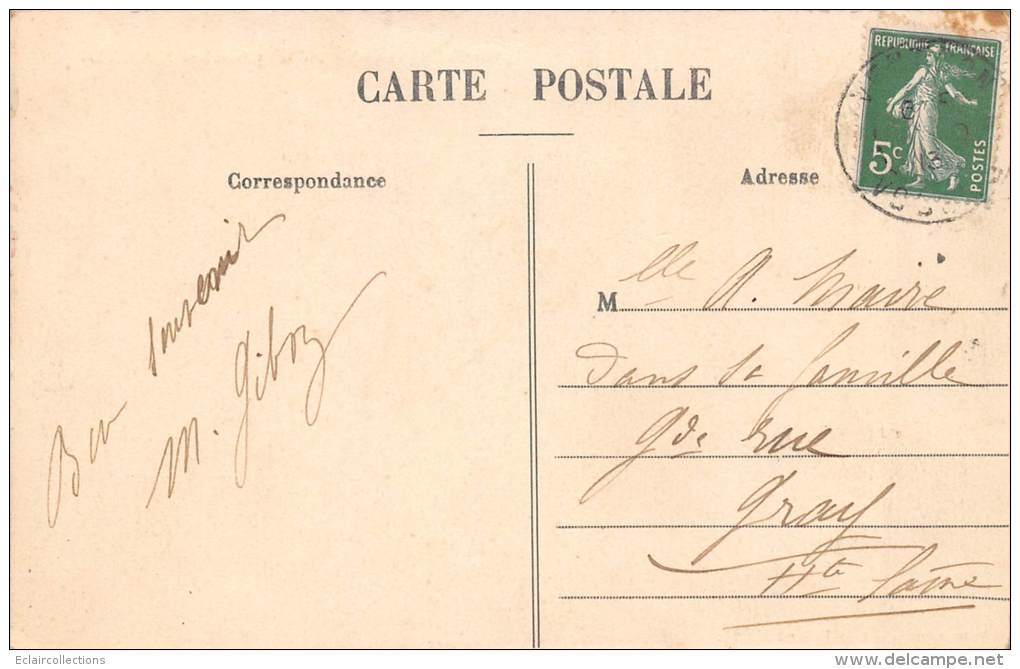 CARTE POSTALE
Correspondance
Adresse
REPUBLIQUE FRANÇAISE
5c
POSTES
Bon souvenir
M. Giboz
Mlle A. Maire
dans sa famille
Gde rue
Gray
Hte Saône
Eclaircollections
delcampe.net